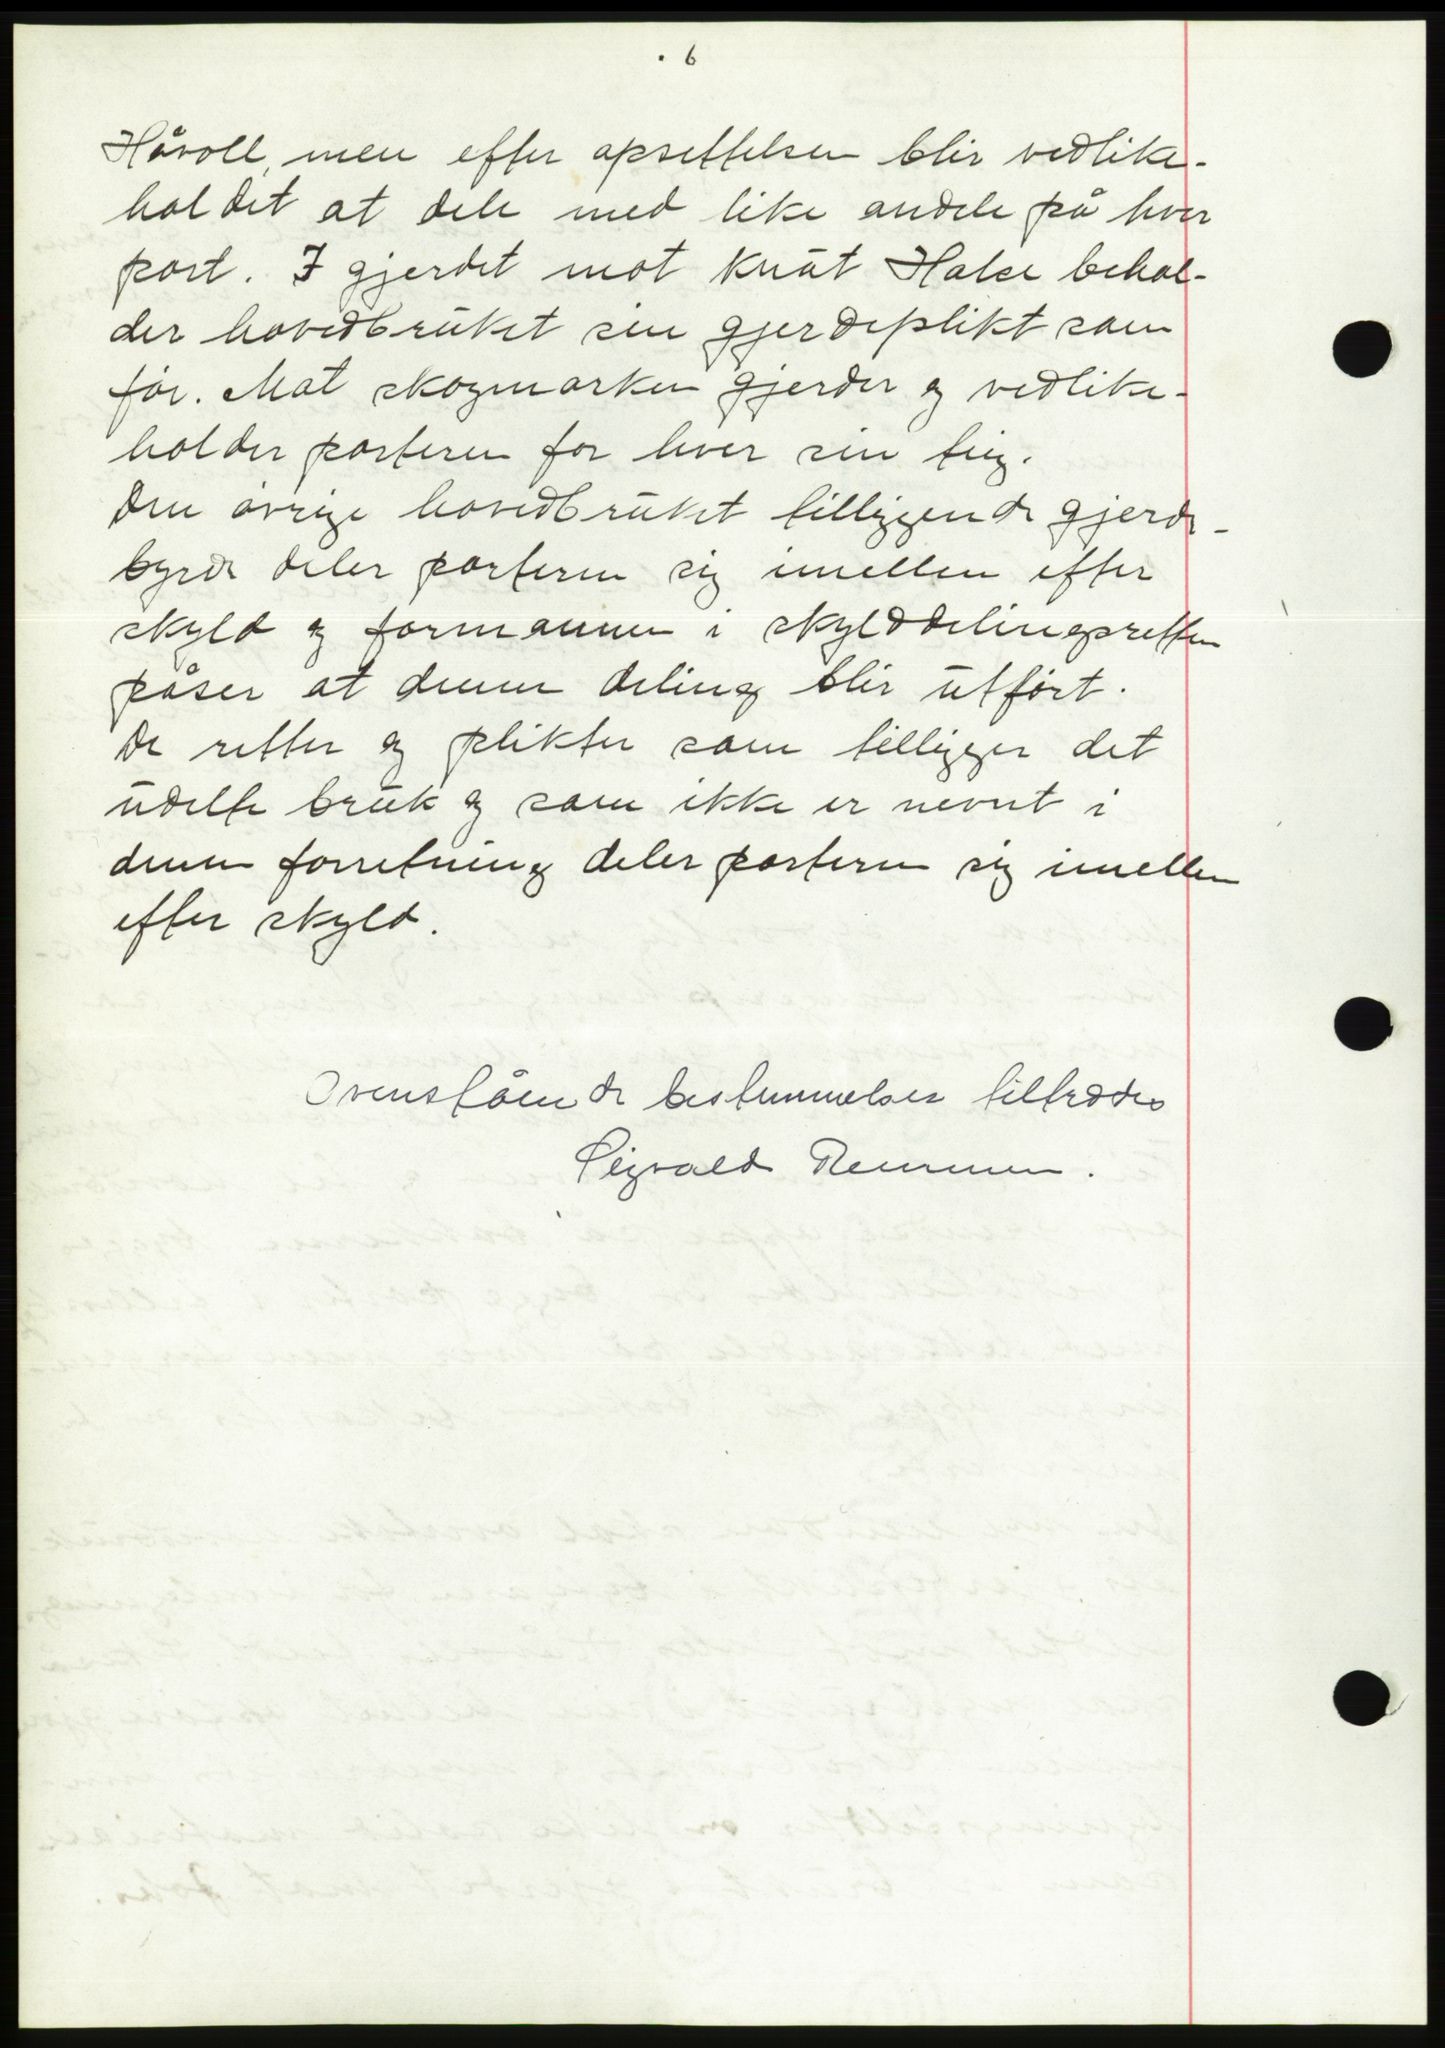 . 6
Håvoll, men efter opsettelsen blir vedlike-
holdet at dele med like andele på hver
part. I gjerdet mot Knut Hake behol-
der hovedbruket sin gjerdeplikt som
før. Mot skogmarken gjerder og vedlike-
holder parterne for hver sin teig.
Den øvrige hovedbruket tilliggende gjerde-
byrde deler parterne sig imellem efter
skyld og formannen i skylddelingsretten
påser at denne deling blir utført.
De retter og plikter som tilligger det
udelte bruk og som ikke er nevnt i
denne forretning deler parterne sig imellem
efter skyld.
Ovenstående bestemmelser tiltredes
Sigvald Remmen.